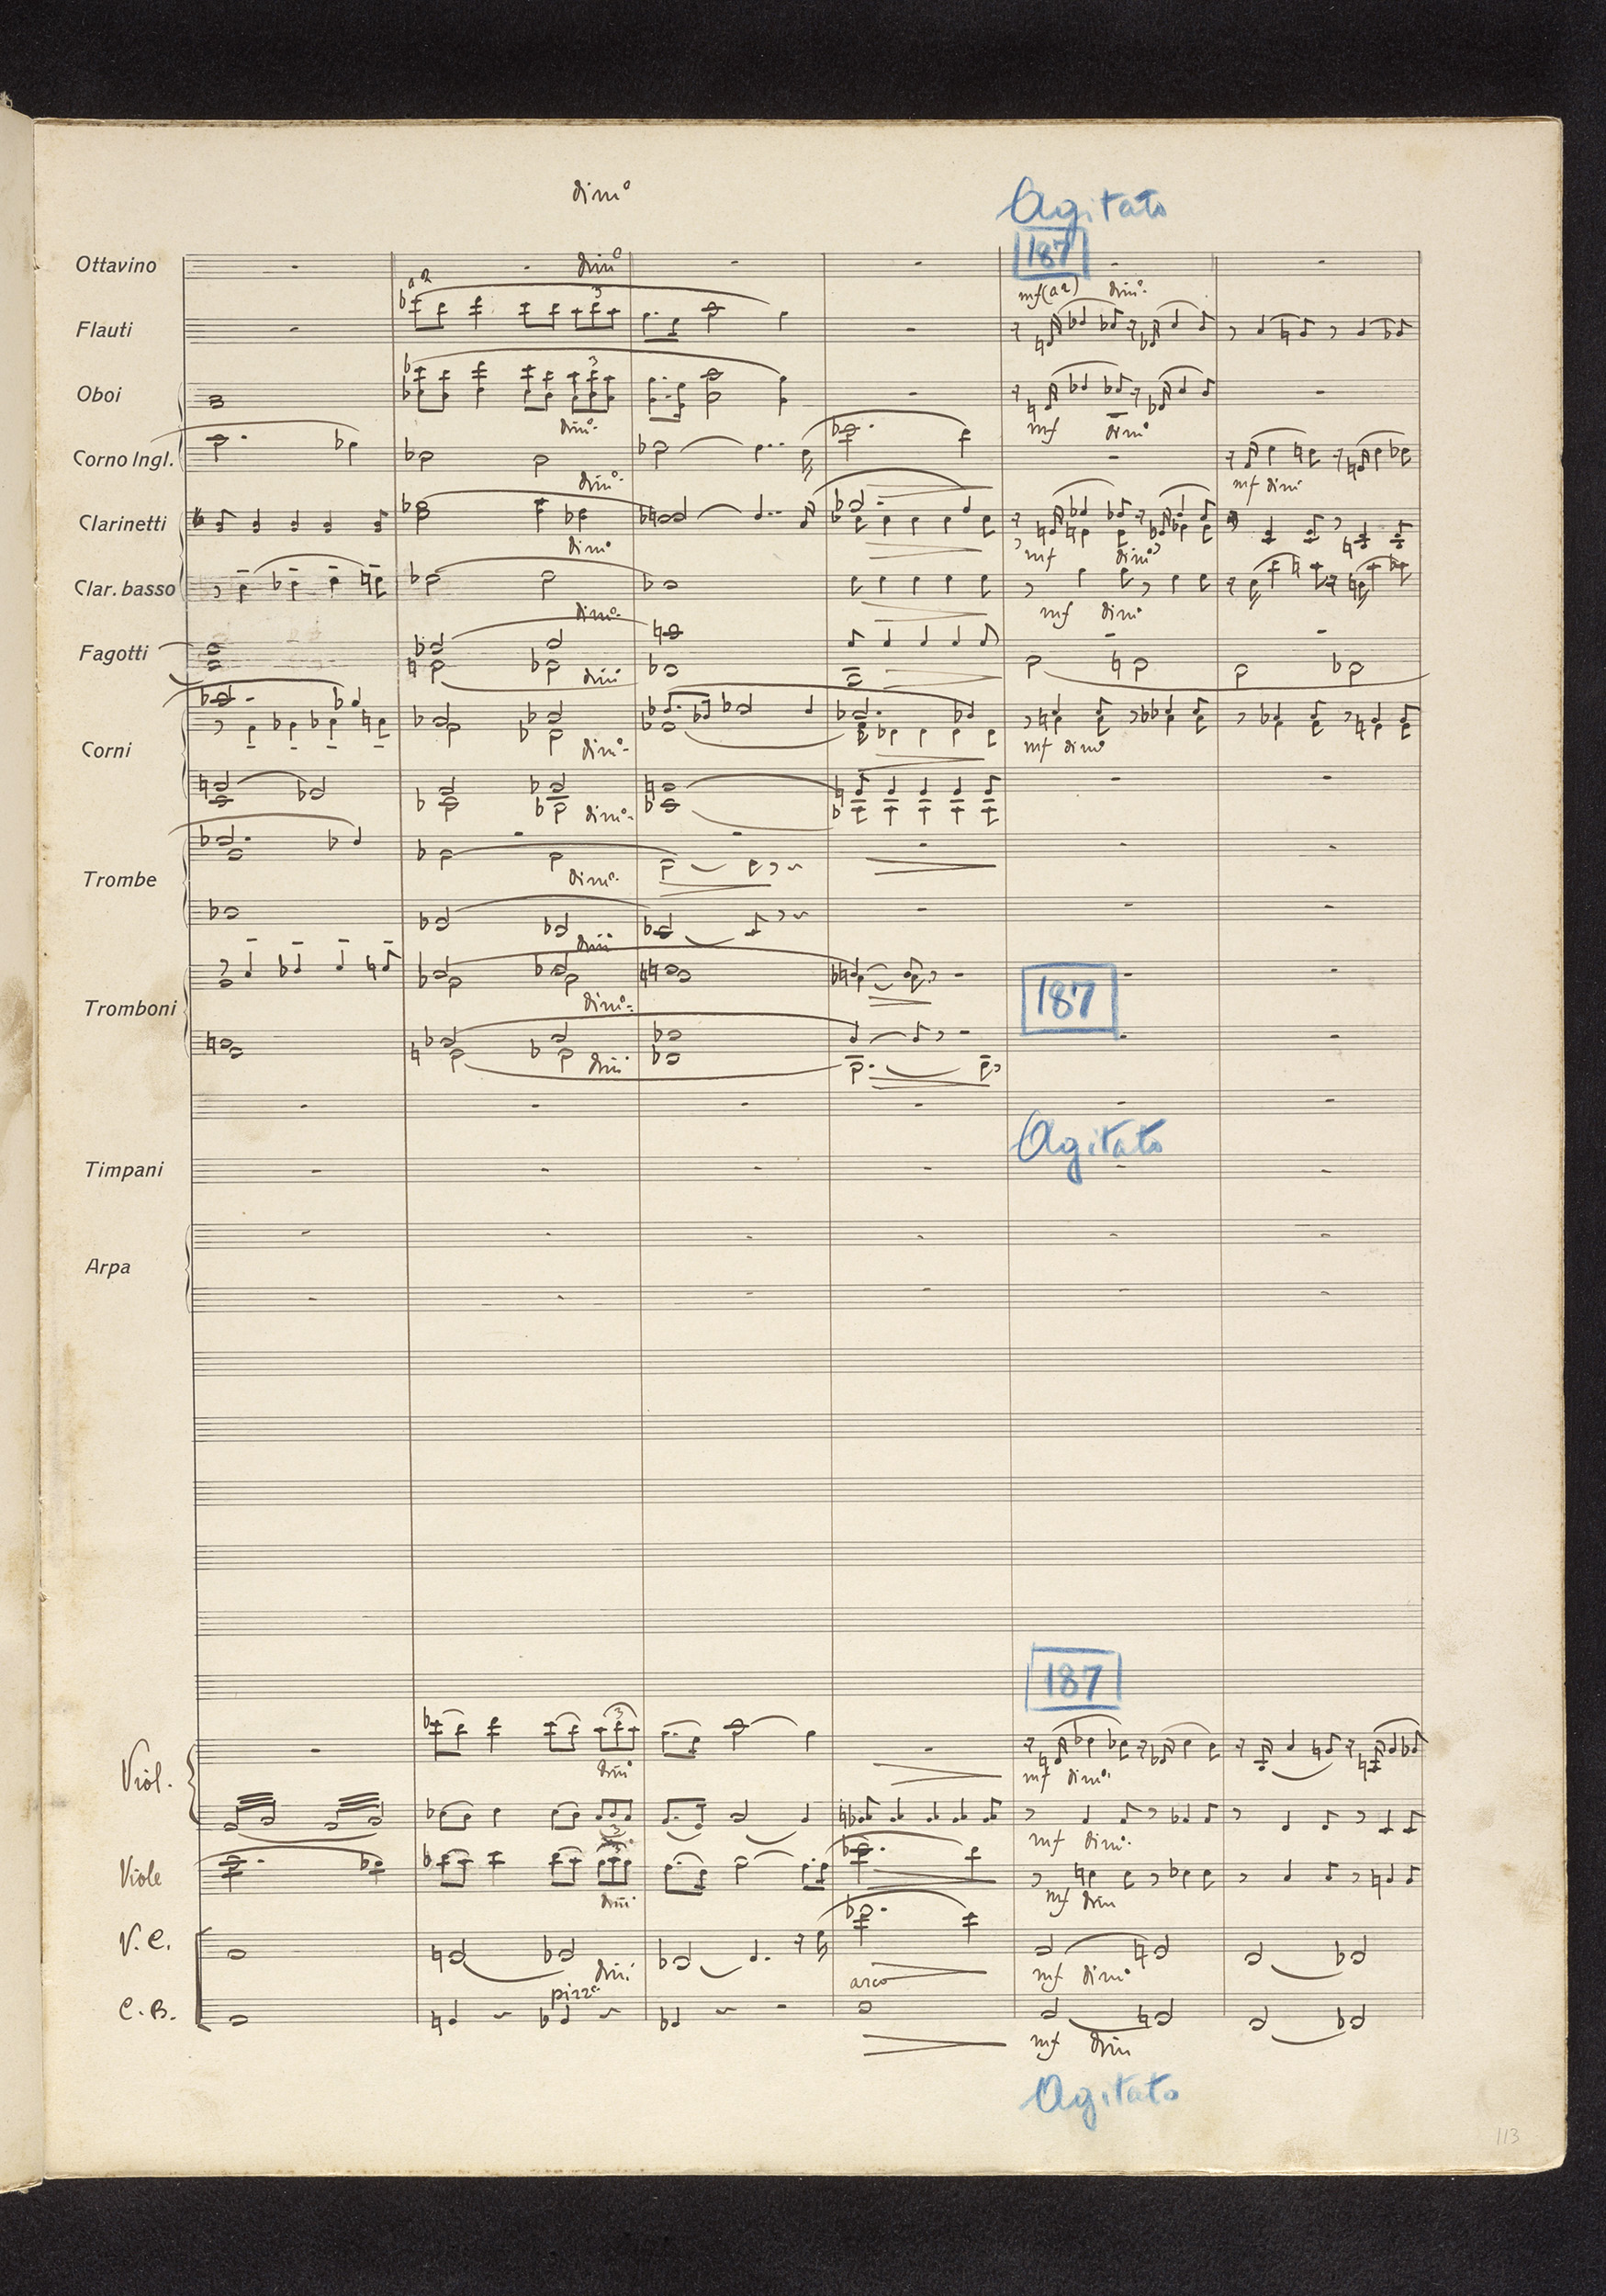 dimº
Agitato
187
Ottavino
dimº
a 2
3
mf (a2) dimº.
Flauti
3
Oboi
dimº.
mf dimº
Corno Ingl.
dimº.
mf dimº
Clarinetti
dimº
mf dimº
Clar. basso
dimº.
mf dimº
Fagotti
dim
Corni
dimº.
mf dimº
dimº.
Trombe
dimº.
dim
Tromboni
187
dimº.
dim
Agitato
Timpani
Arpa
187
3
Viol.
dimº
mf dimº.
3
mf dimº.
3
Viole
dim
mf dim
V. C.
dim.
arco
mf dimº
pizzº.
C. B.
mf dim
Agitato
113